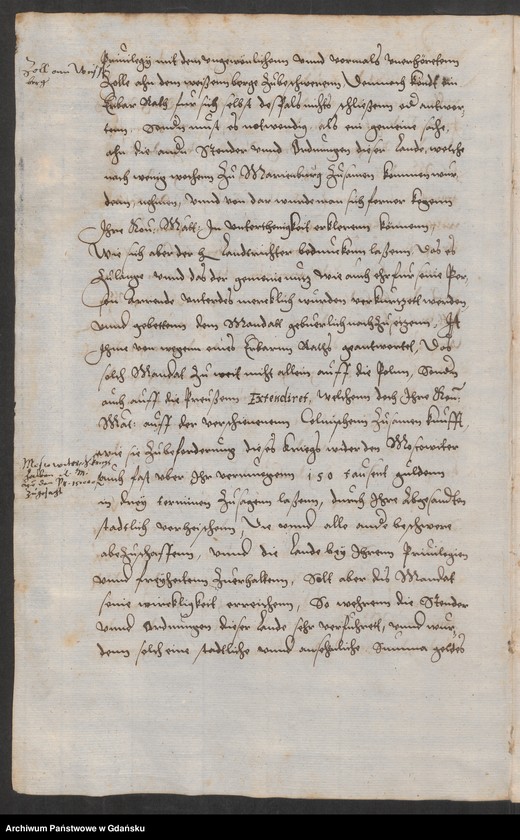 Zoll am Weissen
berge
Priuilegij mit dem vngewonlichem vnnd vormals vnerhöretem
Zolle ahn dem weissem berge zubeschwerenn, Dennoch köndt ein
Erbar Rath für sich selbst desfals nichts schliessenn od antwor-
tenn, Sondn must es notwendig als ein gemeine sache,
ahn die andn Stender vnnd Ordnungen dieser Lande, welche
nach wenig wochenn zu Marienburg zusamen kommen wür
denn, nehmen, vnnd von dar würde man sich ferner kegenn
Ihre Kon: Matt: In vnterthenigkeit erklerenn können,
Wie sich aber der H Landrichter beduncken lassenn, Das es
zu lange vnnd das der gemeine nutz wie auch ehr für seine Per-
son Arrende vnterdes mercklich wurden verkurtzett werden
vnnd gebettenn dem Mandatt gebuerlich nachzusetzenn, Ist
Ihme von wegenn eines Erbarnn Raths geantwortet, Das
solch Mandat zu weit nicht allein auff die Polen, Sondn
auch auff die Preussenn Extendiret, welchem doch Ihre Kon:
Mat: auff der verschienenn Colmischenn zusamen kunfft,
wie sie zubeforderung dieses Kriegs wider den Moscowiter
auch fast vber Ihr vermuegenn 150 tausent guldenn
in drey terminen zusagenn lassenn, durch Ihre Abgesandten
stadtlich verheischenn, Die vnnd alle andre beschwere
abezuschaffenn, vnnd die Lande bey Ihrem Priuilegien
vnnd freyheitenn zuerhaltenn, Soll aber dis Mandat
seine wirckligkeit erreichenn, So wehrenn die Stender
vnnd Ordnungen dieser Lande sehr verfuhrett, vnnd wur-
denn solch eine stadtliche vnnd ansehnliche Summa geldes
Archiwum Państwowe w Gdańsku